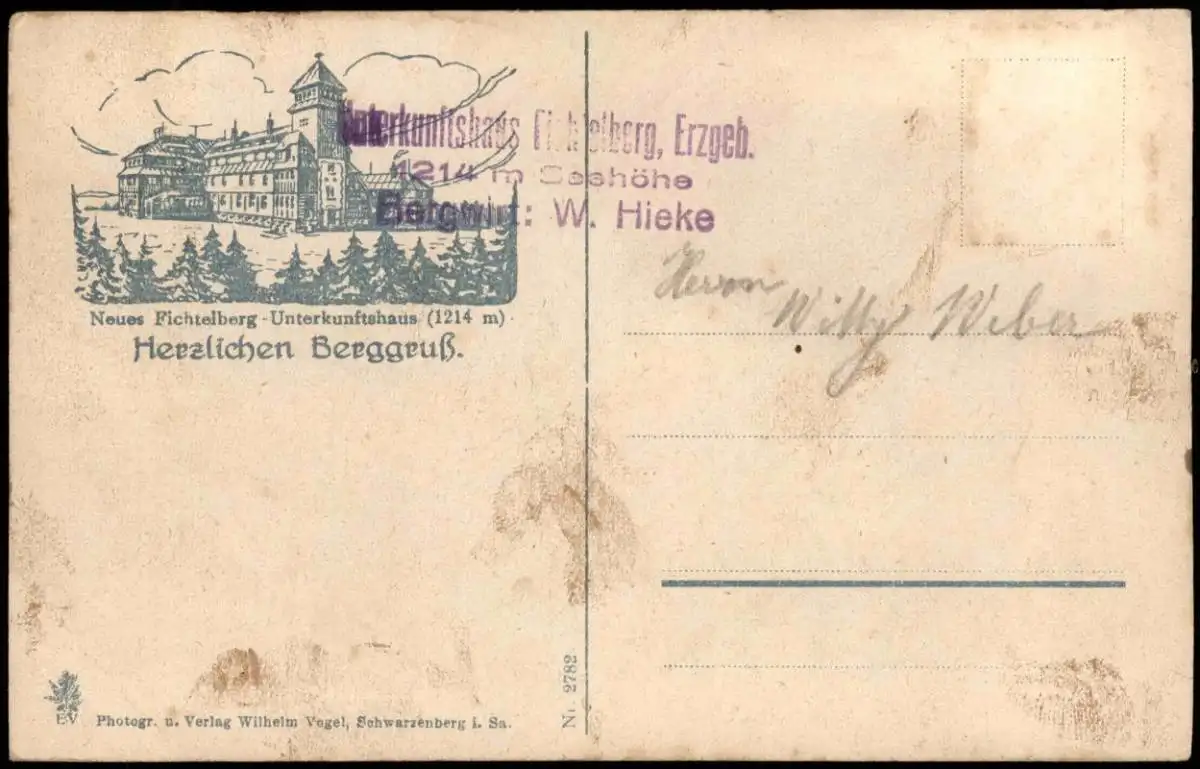 Unterkunftshaus Fichtelberg, Erzgeb.
1214 m Seehöhe
Bergwirt: W. Hieke
Neues Fichtelberg-Unterkunftshaus (1214 m).
Herzlichen Berggruß.
Herrn
Willy Weber
Nr. 2782
EV
Photogr. u. Verlag Wilhelm Vogel, Schwarzenberg i. Sa.